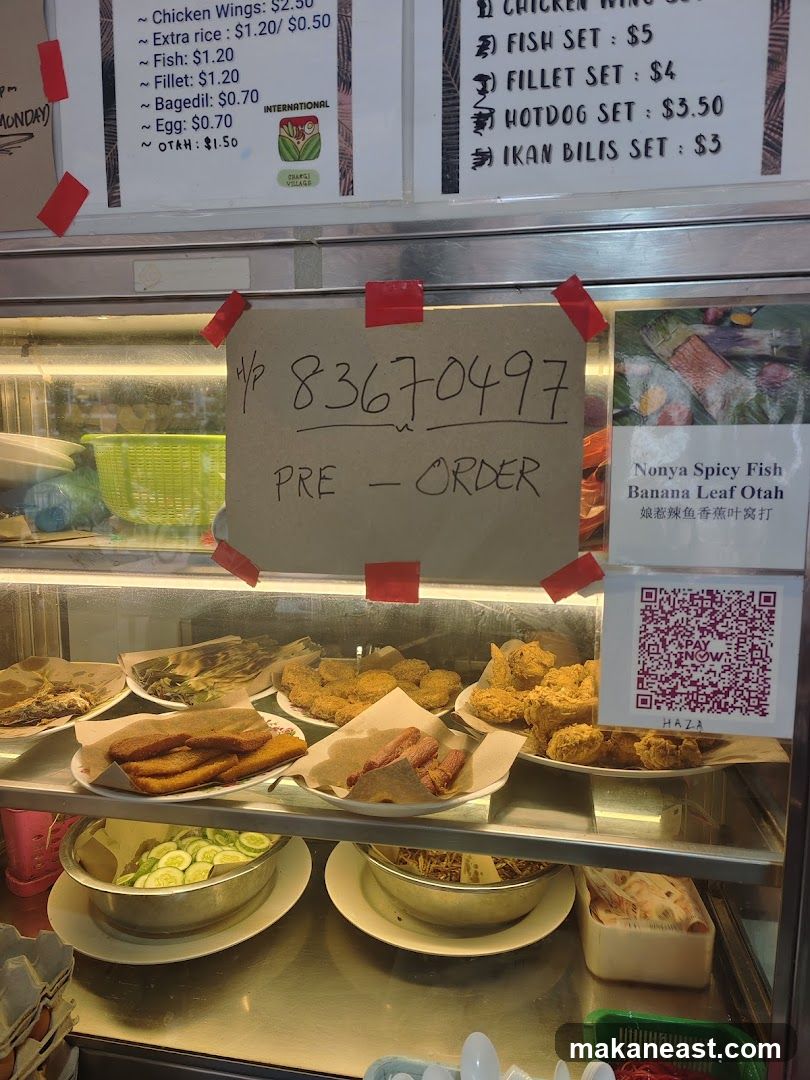 ~ Chicken Wings: $2.50
~ Extra rice : $1.20/ $0.50
~ Fish: $1.20
~ Fillet: $1.20
~ Bagedil: $0.70
~ Egg: $0.70
~ OTAH : $1.50
INTERNATIONAL
CHANGI
VILLAGE
MONDAY)
CHICKEN WING SET
FISH SET : $5
FILLET SET : $4
HOTDOG SET : $3.50
IKAN BILIS SET : $3
H/P 83670497
PRE - ORDER
Nonya Spicy Fish
Banana Leaf Otah
娘惹辣鱼香蕉叶窝打
PAY
NOW
HAZA
makaneast.com